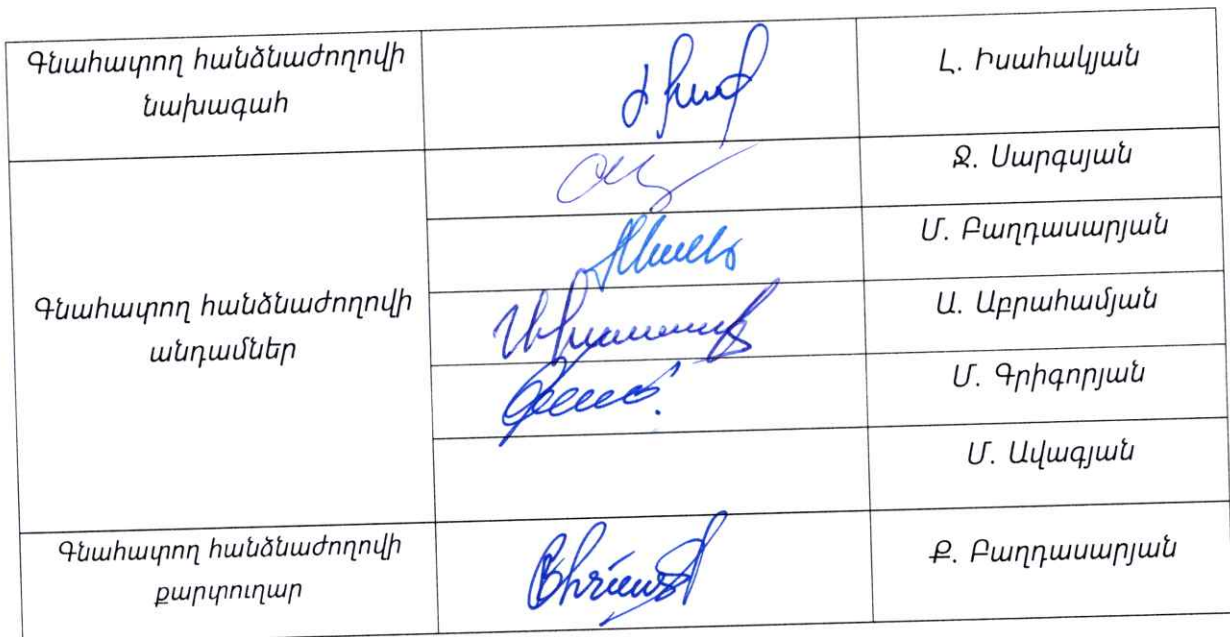 Գնահատող հանձնաժողովի
նախագահ
Լ. Իսահակյան
Գնահատող հանձնաժողովի
անդամներ
Ջ. Սարգսյան
Մ. Բաղդասարյան
Ա. Աբրահամյան
Մ. Գրիգորյան
Մ. Ավագյան
Գնահատող հանձնաժողովի
քարտուղար
Ք. Բաղդասարյան